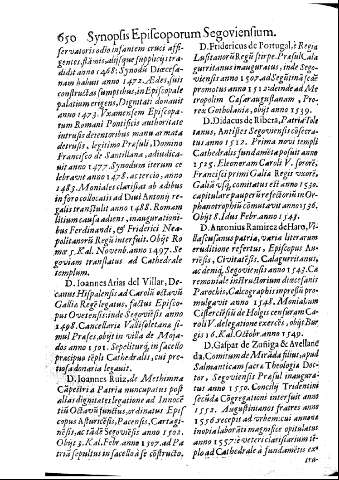 650 Synopsis Episcoporum Segoviensium.
servatoris odio infantem cruci affi-
gentes, flāvis, aliisque suppliciis tra-
didit anno 1468. Synodū Diœcesa-
nam habuit anno 1472. Ædes, suis
constructas sumptibus, in Episcopale
palatium erigens, Dignitati donavit
anno 1473. Vxamensem Episcopa-
tum Romani Pontificis authoritate
intrusis detentoribus manu armata
detrusis, legitimo Præsuli, Domino
Francisco de Santillana, adiudica-
vit anno 1477. Synodum iterum ce-
lebravit anno 1478. ac tertio, anno
1483. Moniales clarissas ab ædibus
in foro collocatis ad Divi Antonij re-
galia transtulit anno 1488. Romam
litium causa adiens, inaugurationi-
bus Ferdinandi, & Friderici Nea-
politanorū Regū interfuit. Obijt Ro-
mæ 5. Kal. Novemb. anno 1497. Se-
goviam translatus ad Cathedrale
templum.
D. Ioannes Arias del Villar, De-
canus Hispalensis ad Caroli octavū
Galliæ Regē legatus, factus Episco-
pus Ovetensis; inde Segoviēsis anno
1498. Cancellariæ Vallisoletanæ si-
mul Præses, obijt in villa de Moja-
dos anno 1501. Sepelitur q̃ in sacello
præcipuo tēpli Cathedralis, cui pre-
tiosa donaria legavit.
D. Ioannes Ruiz, de Methymna
Cāpestri a Patria nuncupatus post
alias dignitates legatione ad Inno-
tiū Octavū functus, ordinatus Epis-
copus Asturicēsis, Pacensis, Cartagi-
nēsis, ac tādē Segoviēsis anno 1502.
Obijt 3. Kal. Febr. anno 1507. ad Pa-
triā sepultus in sacello à se cōstructo.
D. Fridericus de Portugal, è Regia
Lusitanorū Regū stirpe Præsul Cala-
guritanus inauguratus, inde Sego-
viēsis anno 1507. ad Segūtinā sedē
promotus anno 1512. deinde ad Me-
tropolim Cæsaraugustanam, Pro-
rex Gothalaunis, obijt anno 1539.
D. Didacus de Ribera, Patria Tole-
tanus, Antistes Segoviensis cōsecra-
tus anno 1512. Prima novi templi
Cathedralis fundamēta posuit anno
1525. Eleonoram Caroli V. sororē,
Francisci primi Galiæ Regis vxorē,
Galliā vsq; comitatus est anno 1530.
capitulare pauperū refectoriū in Or-
phanotrophio construxit anno 1536.
Obijt 8. Idus Febr. anno 1543.
D. Antonius Ramirez de Haro, Vi-
llaescusanus patria, varia literarum
eruditione refertus, Episcopus Au-
riēsis, Civitatēsis, Calaguritanus,
ac demq̃, Segoviensis anno 1543. Cæ-
remoniale instructorium dioecesanis
Parochis, Calcographis impressū pro-
mulgavit anno 1548. Monialium
Cisterciēsiū de Holgis censuram Ca-
roli V. delegatione exercēs, obijt Bur-
gis 16. Kal. Octobr. anno 1549.
D. Gaspar de Zuñiga & Avellane-
da, Comitum de Mirāda filius, apud
Salmanticam sacræ Theologiæ Doc-
tor, Segoviensis Præsul inaugura-
tus anno 1550. Concilij Tridentini
secūda cōgregationi interfuit anno
1552. Augustinianos fratres anno
1556. recepit ad vrbem: cui annona
inopia laborāti magnifice opitulatus
anno 1557. è veteri classariarum tē-
plo ad Cathedrale à fundamentis fac-
tra-